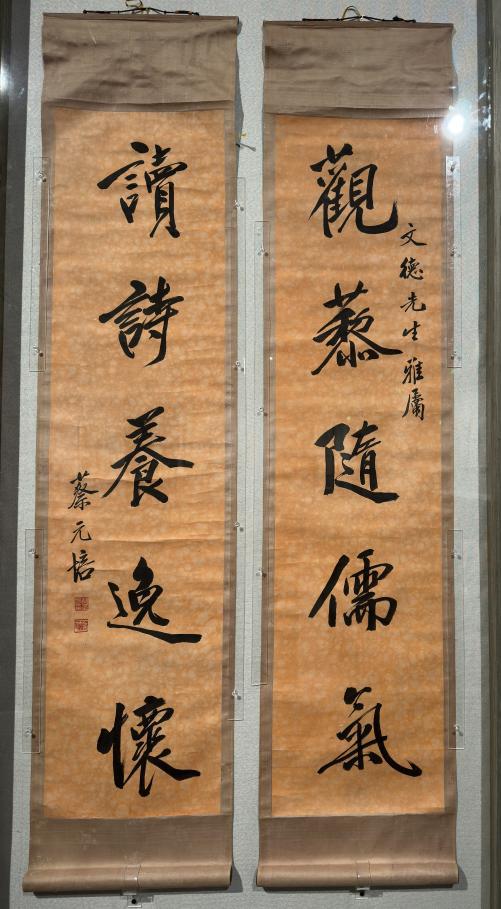 觀藜隨儒氣
文德先生雅屬
讀詩養逸懷
蔡元培